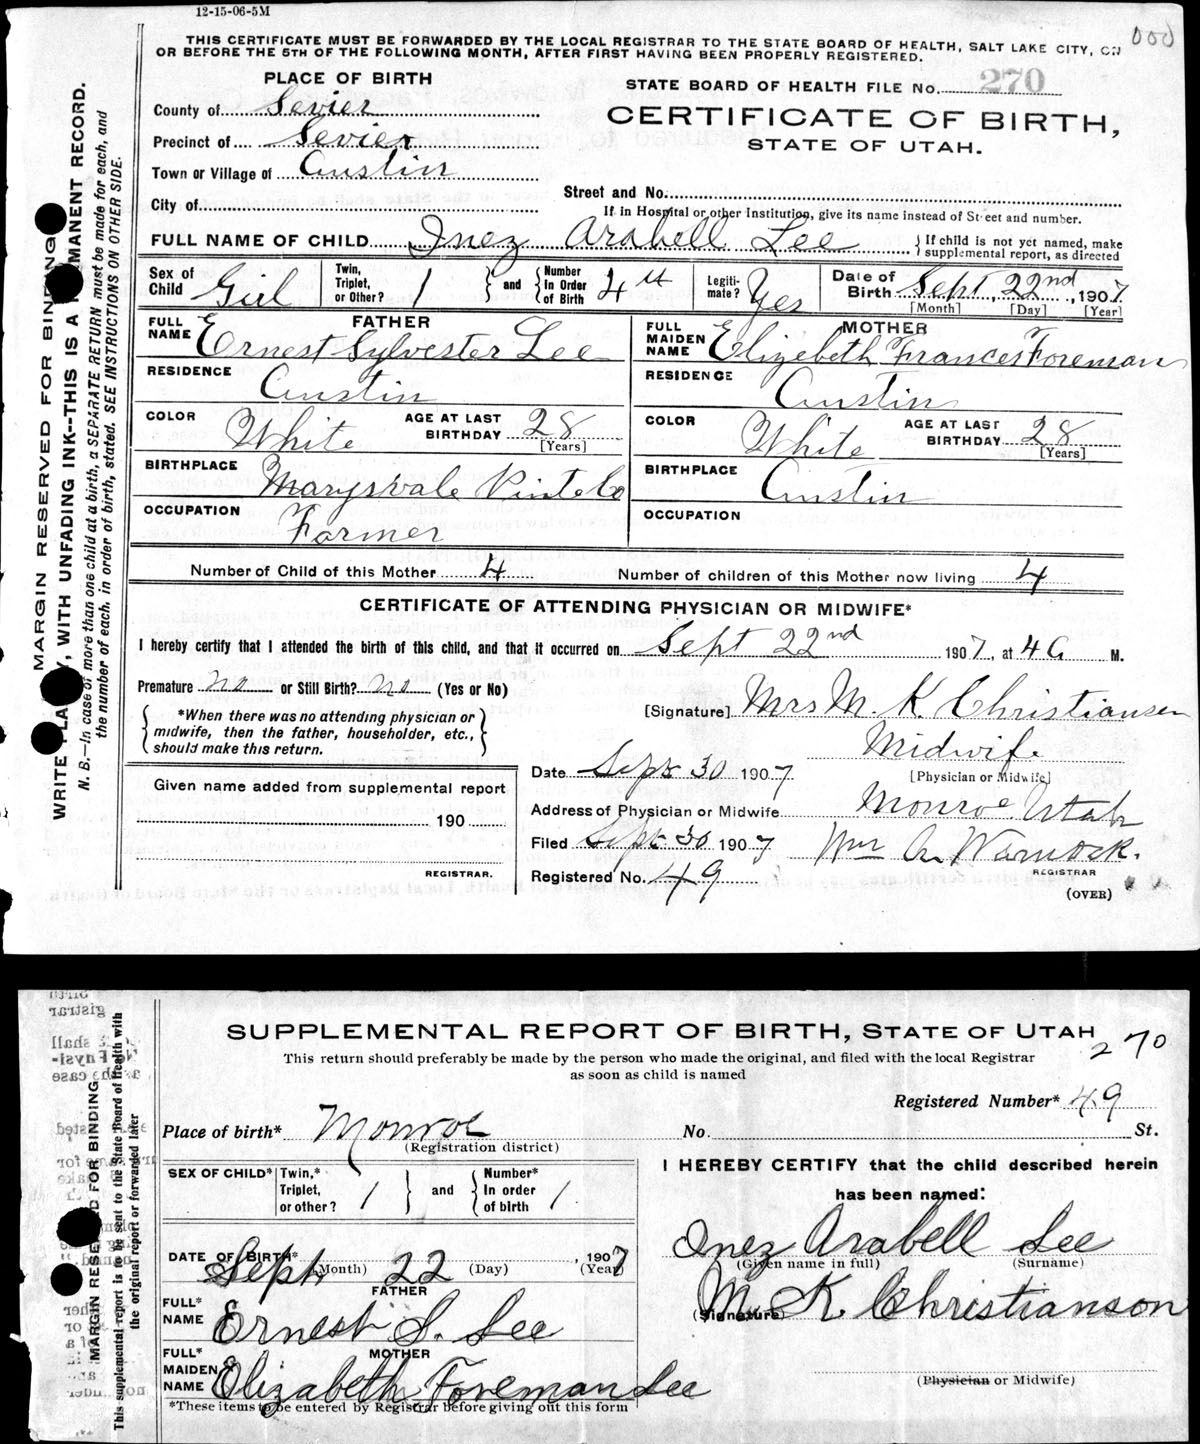 12-15-06-5M
000
THIS CERTIFICATE MUST BE FORWARDED BY THE LOCAL REGISTRAR TO THE STATE BOARD OF HEALTH, SALT LAKE CITY, ON
OR BEFORE THE 5TH OF THE FOLLOWING MONTH, AFTER FIRST HAVING BEEN PROPERLY REGISTERED.
MARGIN RESERVED FOR BINDING
WRITE PLAINLY, WITH UNFADING INK--THIS IS A PERMANENT RECORD.
N. B.--In case of more than one child at a birth, a SEPARATE RETURN must be made for each, and
the number of each, in order of birth, stated. SEE INSTRUCTIONS ON OTHER SIDE.
PLACE OF BIRTH
County of Sevier
Precinct of Sevier
Town or Village of Austin
City of
STATE BOARD OF HEALTH FILE No. 270
CERTIFICATE OF BIRTH,
STATE OF UTAH.
Street and No.
If in Hospital or other Institution, give its name instead of Street and number.
FULL NAME OF CHILD Inez Arabell Lee
If child is not yet named, make
supplemental report, as directed
Sex of Child Girl
Twin, Triplet, or Other? 1 and Number in Order of Birth 4th
Legiti-mate? Yes
Date of Birth Sept, 22nd, 1907
[Month] [Day] [Year]
FATHER
FULL NAME Ernest Sylvester Lee
RESIDENCE Austin
COLOR White AGE AT LAST BIRTHDAY 28 [Years]
BIRTHPLACE Marysvale Piute Co
OCCUPATION Farmer
MOTHER
FULL MAIDEN NAME Elizebeth Frances Foreman
RESIDENCE Austin
COLOR White AGE AT LAST BIRTHDAY 28 [Years]
BIRTHPLACE Austin
OCCUPATION
Number of Child of this Mother 4 Number of children of this Mother now living 4
CERTIFICATE OF ATTENDING PHYSICIAN OR MIDWIFE*
I hereby certify that I attended the birth of this child, and that it occurred on Sept 22nd 1907, at 4 a M.
Premature no or Still Birth? no (Yes or No)
*When there was no attending physician or
midwife, then the father, householder, etc.,
should make this return.
[Signature] Mrs M. K. Christiansen
Midwife
[Physician or Midwife]
Given name added from supplemental report
190
REGISTRAR.
Date Sept 30 1907
Address of Physician or Midwife Monroe Utah
Filed Sept 30 1907 Wm A. Warnock.
REGISTRAR
Registered No. 49
(OVER)
SUPPLEMENTAL REPORT OF BIRTH, STATE OF UTAH
270
This return should preferably be made by the person who made the original, and filed with the local Registrar
as soon as child is named
MARGIN RESERVED FOR BINDING
This supplemental report is to be sent to the State Board of Health with
the original report or forwarded later
Registered Number* 49
Place of birth* Monroe No. St.
(Registration district)
SEX OF CHILD* Twin,* Triplet, or other? 1 and Number* in order of birth 1
I HEREBY CERTIFY that the child described herein
has been named:
Inez Arabell Lee
(Given name in full) (Surname)
DATE OF BIRTH* Sept 22 1907
(Month) (Day) (Year)
M. K. Christianson
(Signature)
FATHER
FULL* NAME Ernest S. Lee
MOTHER
FULL* MAIDEN NAME Elizabeth Foreman Lee
(Physician or Midwife)
*These items to be entered by Registrar before giving out this form